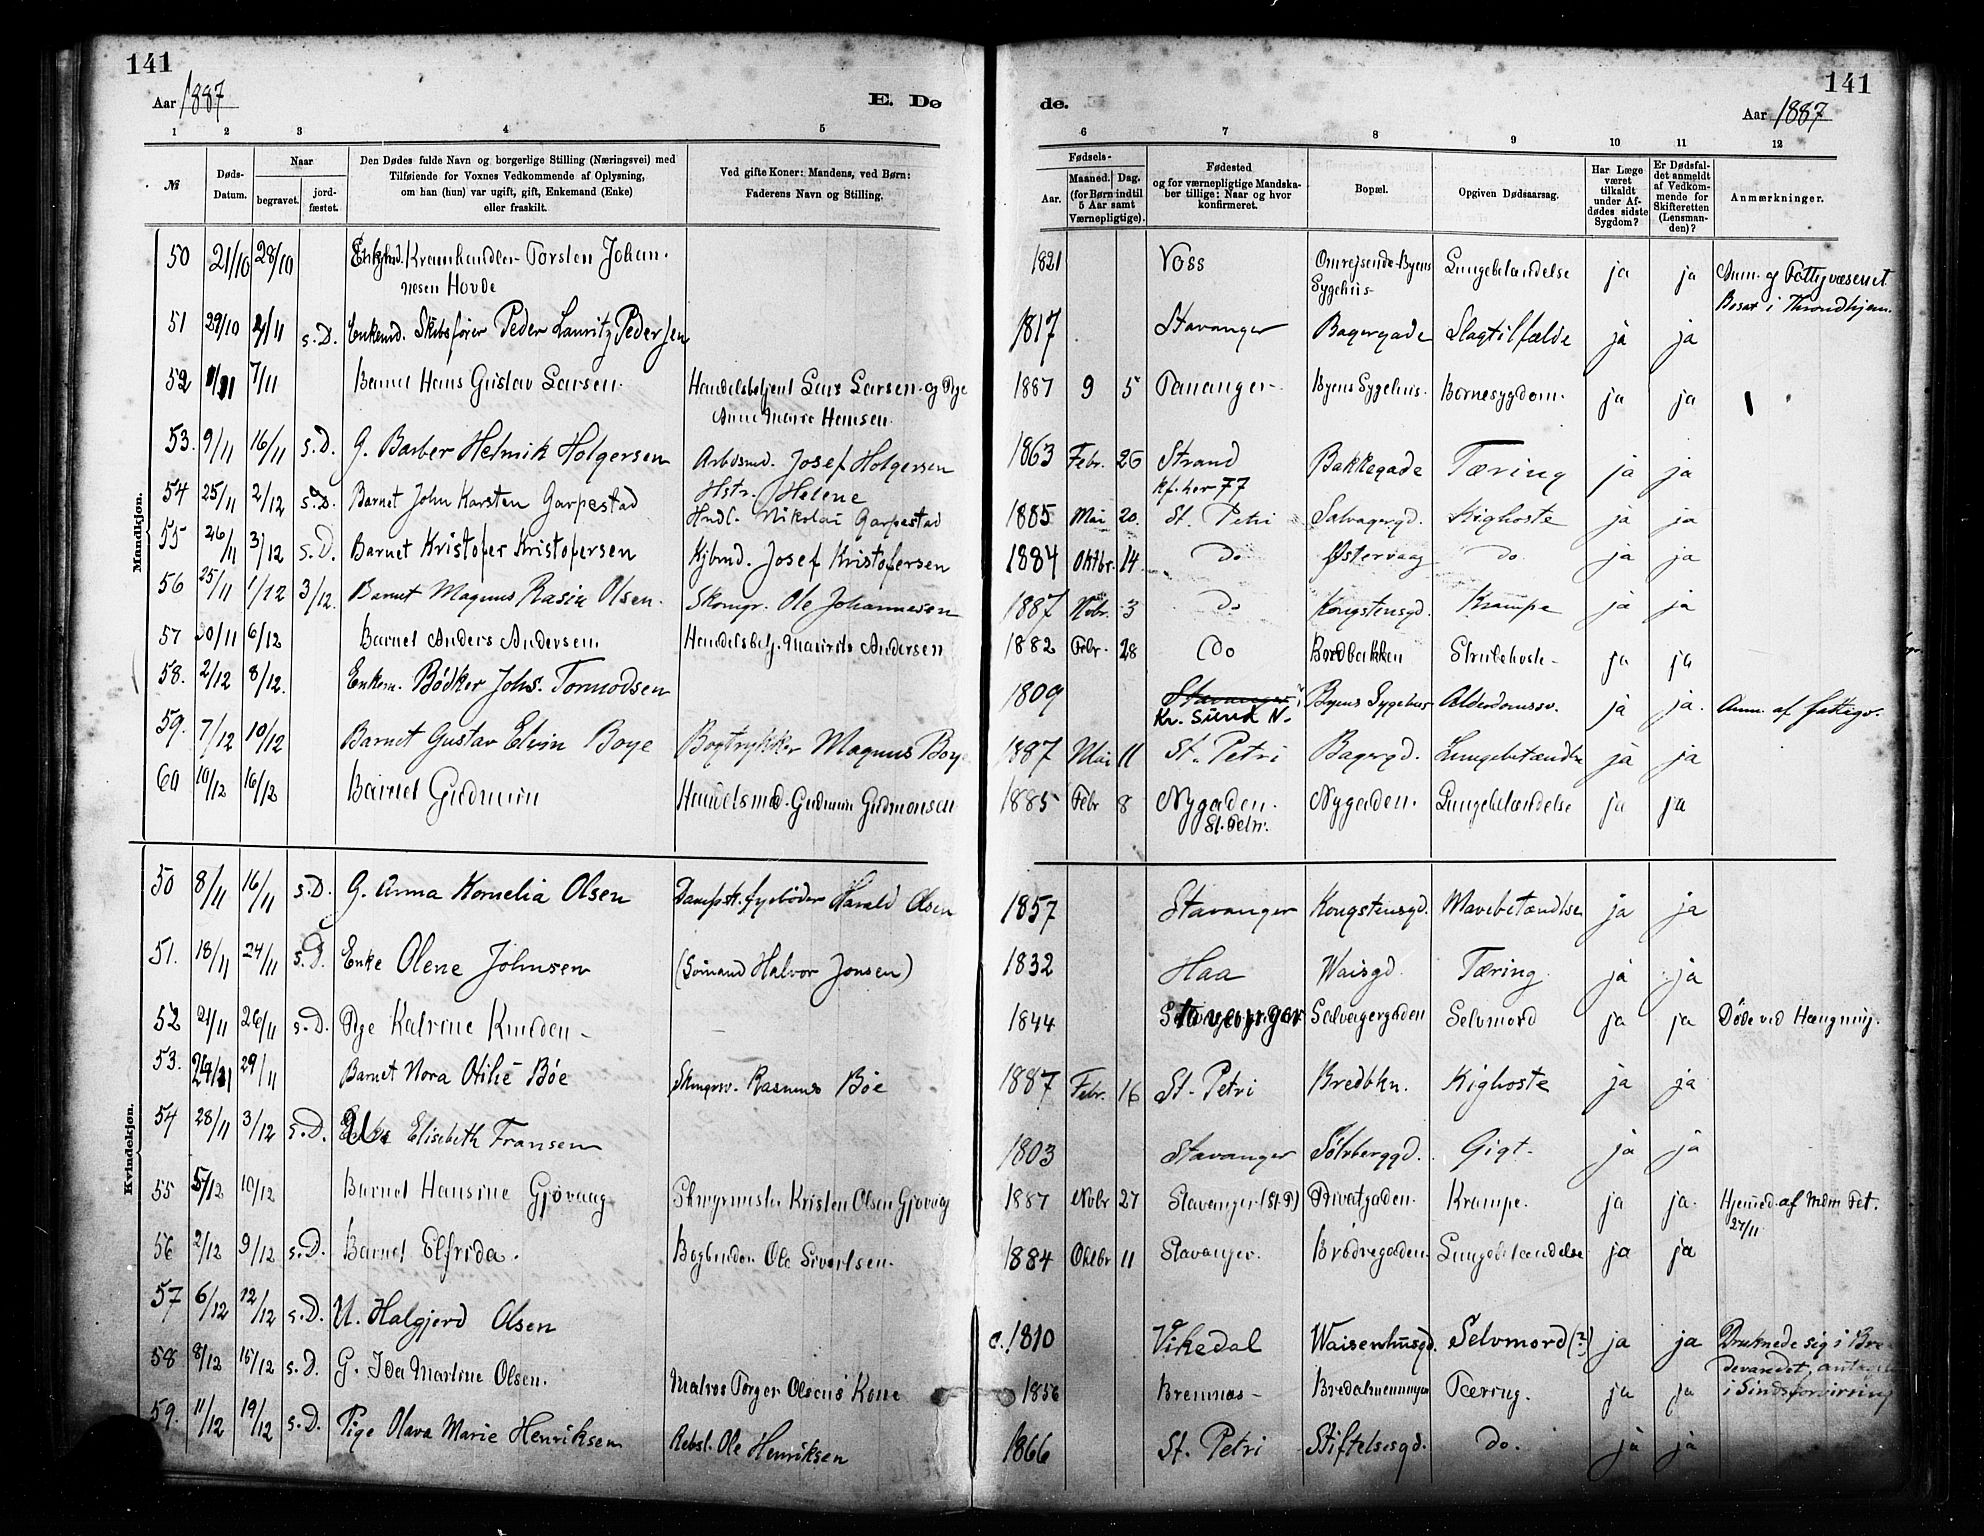 141
141
Aar 1887
E. Dø
de.
Aar 1887
1 2 3 4 5 6 7 8 9 10 11 12
№
Døds-Datum.
Naar
begravet.
jordfæstet.
Den Dødes fulde Navn og borgerlige Stilling (Næringsvei) med
Tilføiende for Voxnes Vedkommende af Oplysning,
om han (hun) var ugift, gift, Enkemand (Enke)
eller fraskilt.
Ved gifte Koner: Mandens, ved Børn:
Faderens Navn og Stilling.
Fødsels-
Aar.
Maaned. Dag.
(for Børn indtil
5 Aar samt
Værnepligtige).
Fødested
og for værnepligtige Mandska-
ber tillige: Naar og hvor
konfirmeret.
Bopæl.
Opgiven Dødsaarsag.
Har Læge
været
tilkaldt
under Af-
dødes sidste
Sygdom?
Er Dødsfal-
det anmeldt
af Vedkom-
mende for
Skifteretten
(Lensman-
den)?
Anmærkninger.
Mandkjøn.
50 21/10 28/10 Enkmd. Kramhandler Torsten Johan- 1821 Voss Omreisende-Byens Lungebetændelse ja ja Anm. af Fattigvæsenet
nesen Hovde Sygehus- Bosat i Throndhjem.
51 29/10 4/11 s.D. Enkemd. Skibsfører Peder Lauritz Pedersen 1817 Stavanger Bagergade Slagtilfælde ja ja
52 1/11 7/11 Barnet Hans Gustav Larsen. Handelsbetjent Lars Larsen og Pige 1887 9 5 Tananger Byens Sygehus. Børnesygdom. ja ja
Anne Marie Hansen.
53. 9/11 16/11 s.D. G. Barber Helmik Holgersen Arbdsmd. Josef Holgersen 1863 Febr. 26 Strand Bakkegade Tæring ja ja
Hstr. Helene kf. her 77
54 25/11 2/12 s.D. Barnet John Karsten Garpestad Hndl. Nikolai Garpestad 1885 Mai 20. St. Petri Salvagergd. Kighoste ja ja
55 26/11 3/12 s.D. Barnet Kristofer Kristofersen Kjbmd. Josef Kristofersen 1884 Oktbr. 14. Do Østervaag do ja ja
56 25/11 1/12 3/12. Barnet Magnus Rasin Olsen. Skomgr. Ole Johannesen 1887 Nobr. 3 Do Kongstensgd. Krampe ja ja
57 30/11 6/12 Barnet Anders Andersen. Handelsbetj. Maurits Andersen 1882 Febr. 28 Do Bredbakken Strubehoste- ja ja
58. 2/12 8/12. Enkem. Bødker Johs. Tormodsen 1809 Stavanger Byens Sygehus Alderdomssv. ja ja. Anm. af fattigv.
Kr. Sund N.
59. 7/12 10/12 Barnet Gustav Elvin Boye Bogtrykker Magnus Boye 1887 Mai 11 St. Petri Bagergd. Lungebetændelse ja ja
60 10/12 16/12 Barnet Gudmun Handelsmd. Gudmun Gudmonsen 1885 Febr 8 Nygaden. Nygaden. Lungebetændelse ja ja
St. Petri.
Kvindekjøn.
50 8/11 16/11 s.D. G. Anna Kornelia Olsen Dampsk.fyrbøder Harald Olsen 1857 Stavanger Kongstensgd. Mavebetændelse ja ja
51. 18/11 24/11 s.D. Enke Olene Johnsen (Sømand Halvor Jonsen) 1832 Haa Waisgd. Tæring ja ja
52 21/11 26/11 s.D. Pige Katrine Knudsen- 1844 Stavanger Salvagergaden Selvmord ja ja Døde ved Hængning.
53. 24/11 29/11 Barnet Nora Otilie Bøe Skmgrsv. Rasmus Bøe 1887 Febr. 16 St. Petri Bredbkn. Kighoste ja ja
54 28/11 3/12 s.D. U. Elisebeth Fransen 1803 Stavanger Sølvberggd. Gigt- ja ja
55 5/12 10/12 Barnet Hansine Gjøvaag Skmgrmester Kristen Olsen Gjøvaag 1887 Nobr 27 Stavanger (St. P) Privatgaden. Krampe. ja ja. Hjemmed. af Mdm Fet.
27/11
56 2/12 9/12 s.D. Barnet Elfrida. Bogbinder Ole Sivertsen. 1884 Oktbr 11 Stavanger. Brødregaden Lungebetændelse ja ja
57 6/12 12/12 s.D. U. Halgjerd Olsen c. 1810 Vikedal Waisenhusgd. Selvmord (?) ja ja Druknede sig i Bre-
devandet, antagelig
i Sindsforvirring
58 8/12 15/12 s.D. G. Ida Martine Olsen. Matros Torger Olsens Kone 1856 Bremnes- Bredalmenningen Tæring. ja ja
59. 11/12 19/12 s.D. Pige Olava Marie Henriksen Rebsl. Ole Henriksen 1866 St. Petri Stiftelsesgd. do. ja ja